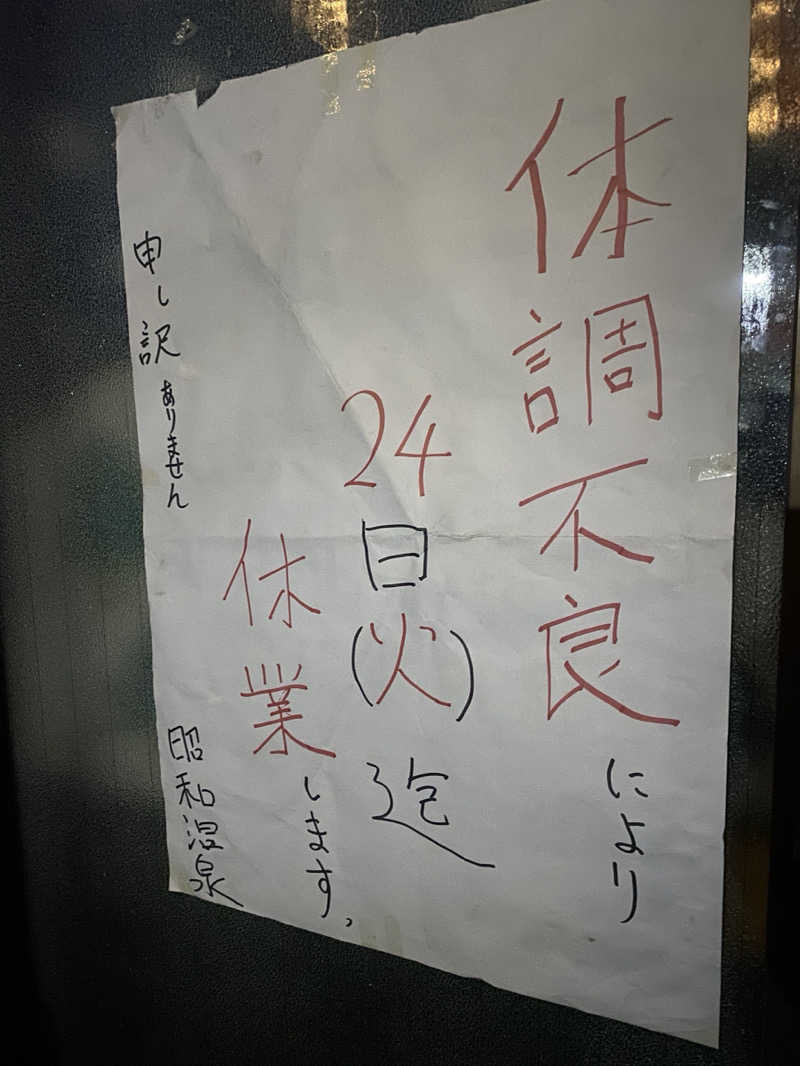 体調不良により
24日(火)迄
休業します。
申し訳ありません
昭和温泉